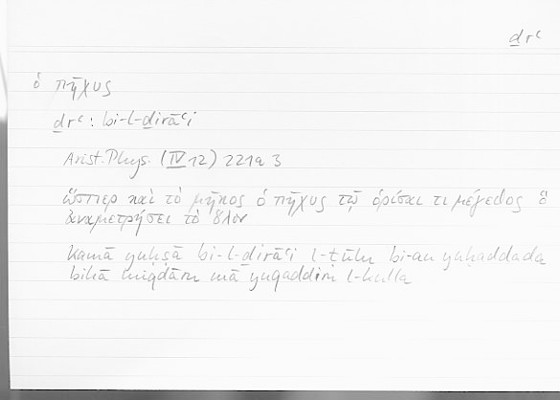 ḏrʿ
ὁ πῆχυς
ḏrʿ : bi-l-ḏirāʿi
Arist. Phys. (IV 12) 221a 3
ὥσπερ καὶ τὸ μῆκος ὁ πῆχυς τῷ ὁρίσαι τι μέγεθος ὃ
ἀναμετρήσει τὸ ὅλον
kamā yuḥṣā bi-l-ḏirāʿi l-ṭūlu bi-an yuḥaddada
bihā miqdārun mā yuqaddiru l-kulla